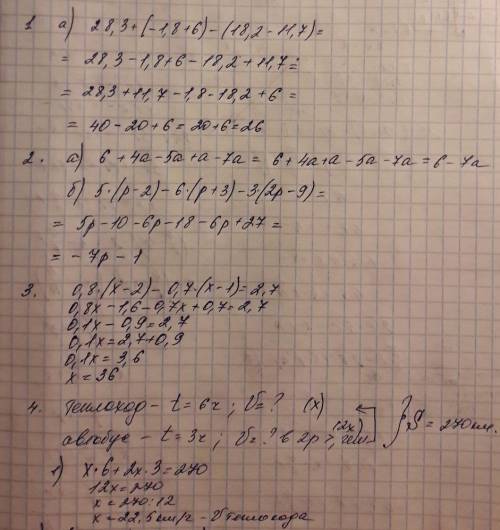 1 а) 28,3+(-1,8+6)-(18,2-11,7)=
= 28,3-1,8+6-18,2+11,7=
= 28,3+11,7-1,8-18,2+6 =
= 40-20+6=20+6=26
2. а) 6+4а-5а+а-7а = 6+4а+а-5а-7а = 6-7а
б) 5·(р-2)-6·(р+3)-3·(2р-9)=
= 5р-10-6р-18-6р+27=
= -7р-1
3. 0,8·(х-2)-0,7·(х-1)=2,7
0,8х-1,6-0,7х+0,7=2,7
0,1х-0,9=2,7
0,1х=2,7+0,9
0,1х=3,6
х=36
4. теплоход - t=6ч; V=? (х)
автобус - t=3ч; V=? в 2р >, чем (2х) } S=270км.
1) х·6+2х·3=270
12х=270
х=270:12
х=22,5км/ч - V теплохода